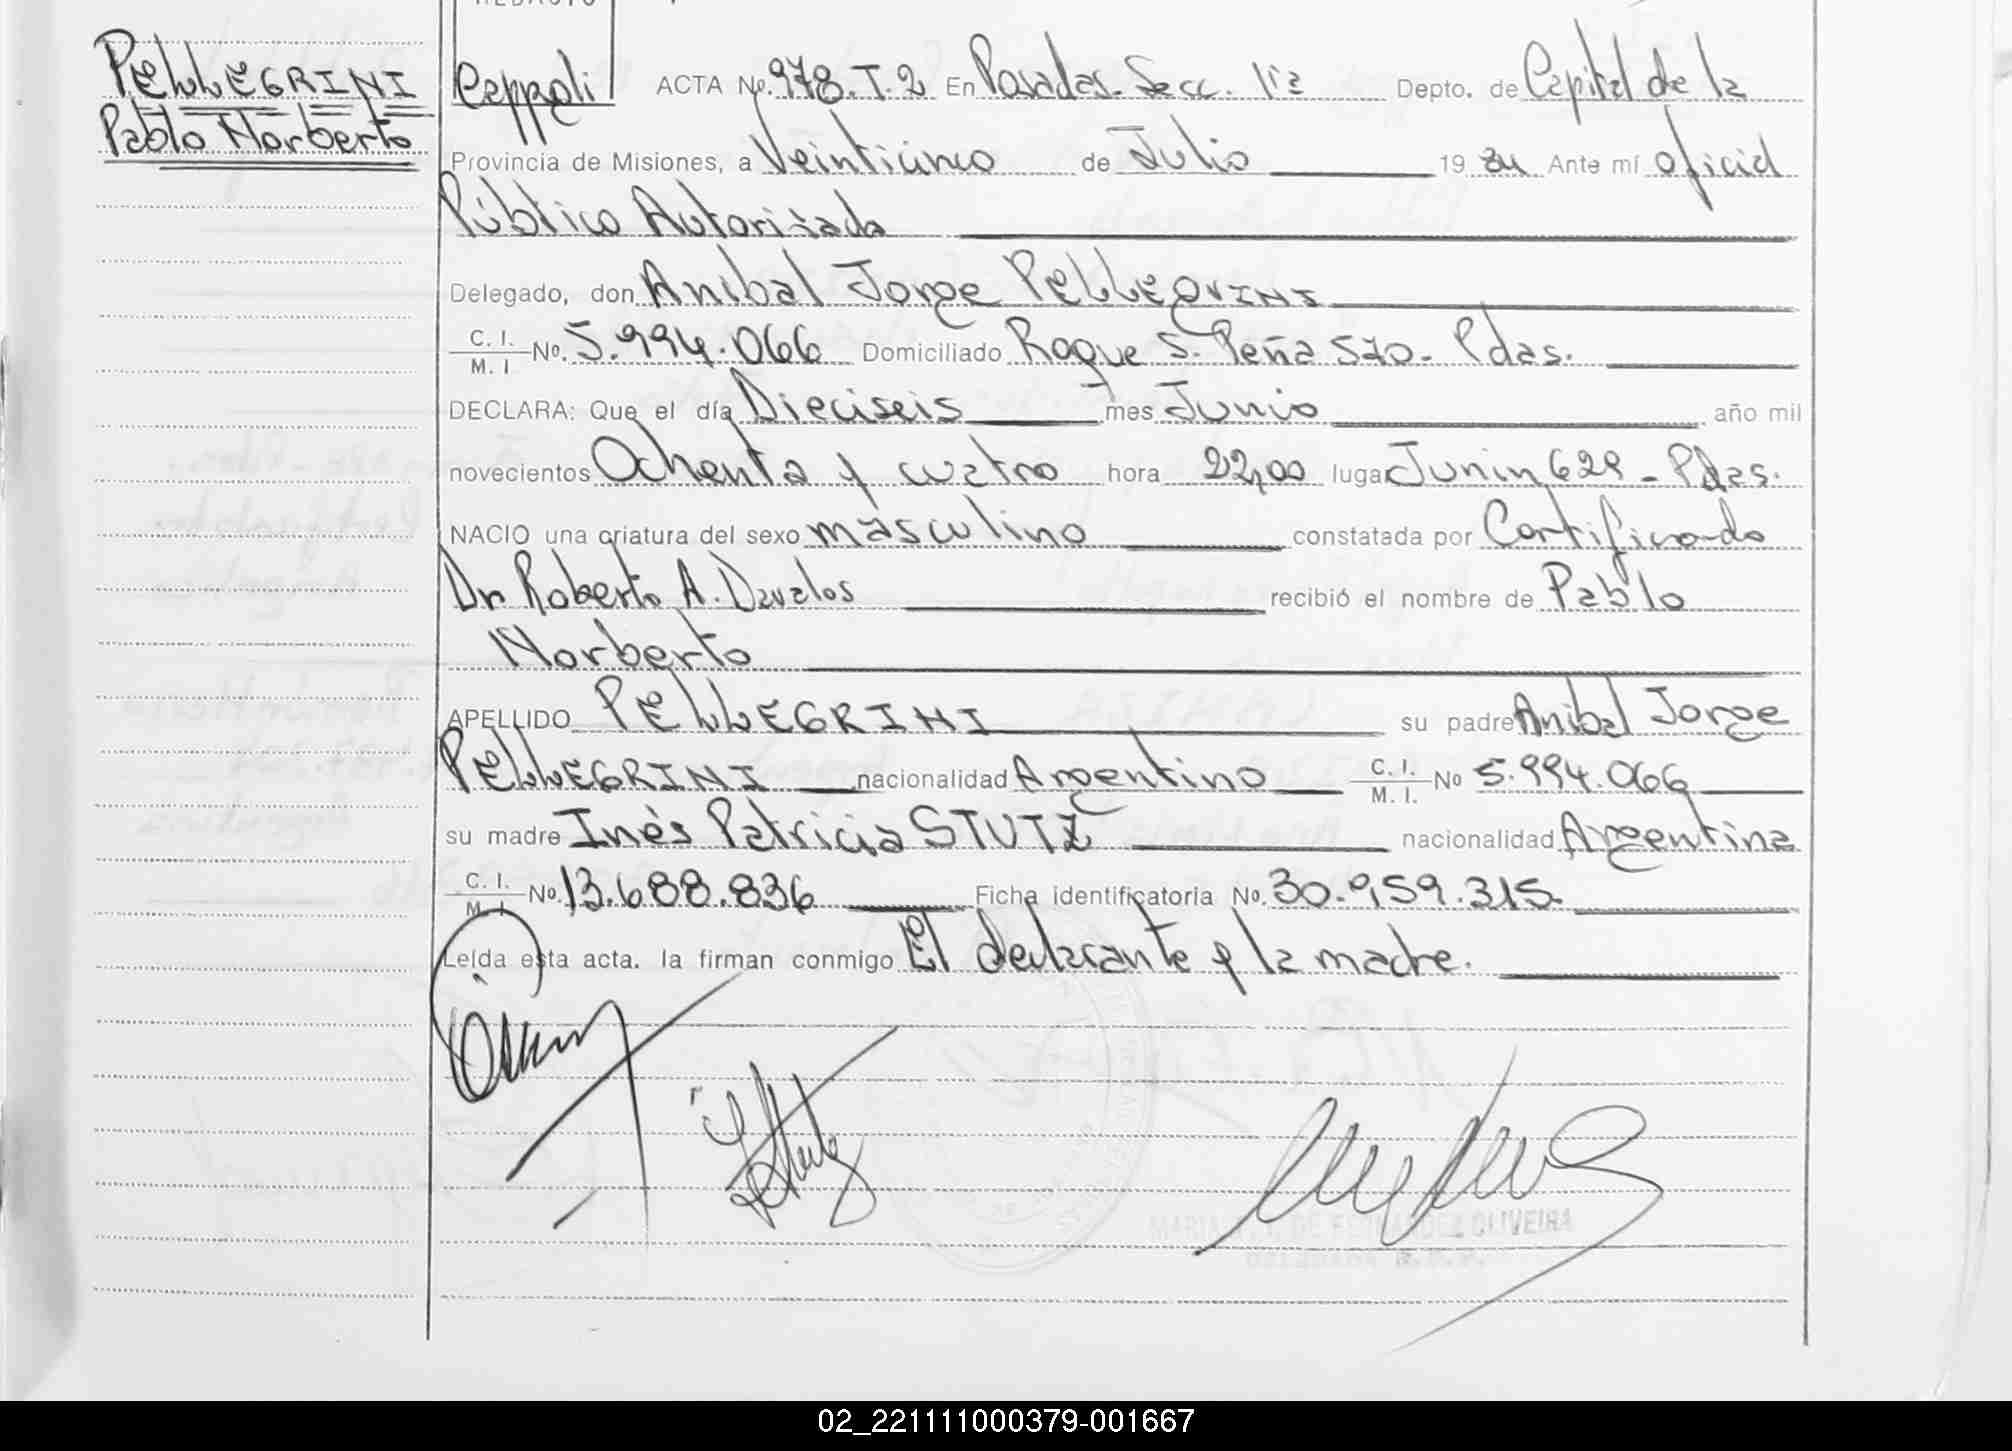 PELLEGRINI
Pablo Norberto
REDACTO
Ceppoli
ACTA No. 978. T. 2 En Posadas. Secc. 1ra Depto. de Capital de la
Provincia de Misiones, a Veinticinco de Julio 1984 Ante mí oficial
Público Autorizada
Delegado, don Anibal Jorge PELLEGRINI
C. I. M. I No. 5.994.066 Domiciliado Roque S. Peña 570- Pdas.
DECLARA: Que el día Dieciseis mes Junio año mil
novecientos Ochenta y cuatro hora 22,00 lugar Junin 629 - Pdas.
NACIO una criatura del sexo masculino constatada por Certificado
Dr Roberto A. Davalos recibió el nombre de Pablo
Norberto
APELLIDO PELLEGRINI su padre Anibal Jorge
PELLEGRINI nacionalidad Argentino C. I. M. I. No 5.994.066
su madre Inés Patricia STUTZ nacionalidad Argentina
C. I. M. I No. 13.688.836 Ficha identificatoria No. 30.959.315.
Leída esta acta. la firman conmigo El declarante y la madre.
OLIVEIRA
02_221111000379-001667